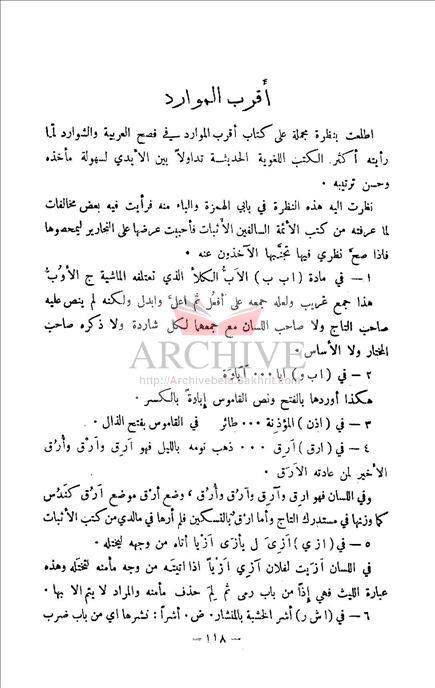 أقرب الموارد
اطلعت بنظرة مجملة على كتاب أقرب الموارد في فصح العربية والشوارد لما
رأيته أكثر الكتب اللغوية الحديثة تداولاً بين الأيدي لسهولة مأخذه
وحسن ترتيبه .
نظرت اليه هذه النظرة في بابي الهمزة والباء منه فرأيت فيه بعض مخالفات
لما عرفته من كتب الأئمة السالفين الأثبات فأحببت عرضها على النحارير ليمحصوها
فاذا صحَّ نظري فيها تجنَّبها الآخذون عنه .
١ – في مادة ( اب ب ) الأبُّ الكلأ الذي تعتلفه الماشية ج الأوُبُّ
هذا جمع غريب ولعله جمعه على أفعُل ثم اعلَّ وابدل ولكنه لم ينص عليه
صاحب التاج ولا صاحب اللسان مع جمعهما لكل شاردة ولا ذكره صاحب
المختار ولا الأساس .
ARCHIVE
http://Archivebeta.Sakhrit.com
٢ – في ( اب و ) ابا ٠٠٠ أباوَة
هكذا أوردها بالفتح ونص القاموس إباوة بالكسر .
٣ – في ( اذن ) المؤذنة ٠٠٠ طائر في القاموس بفتح الذال .
٤ – في ( ارق ) أرِق ٠٠٠ ذهب نومه بالليل فهو أرِق وآرِق وأُرُق
الأخير لمن عادته الأرَق .
وفي اللسان فهو ارق وآرق وأرُق وأُرُق ، وضع أرُق موضع أرُق كنَدُس
كما وزنها في مستدرك التاج وأما ارْق بالتسكين فلم أرها في مالدي من كتب الأثبات
٥ – في ( ازي ) أزى ل يأزى أزْياً أتاه من وجهه ليختله .
في اللسان أزَيت لفلان آزِي أزْياً اذا اتيتَه من وجه مأمنه لتختِله وهذه
عبارة الليث فهي إذاً من باب رمى ثم لِمَ حذف مأمنه والمراد لا يتم الا بها .
٦ – في ( اش ر ) أشر الخشبة بالمنشار . ض . أشراً : نشرها اي من باب ضرب
– ١١٨ –